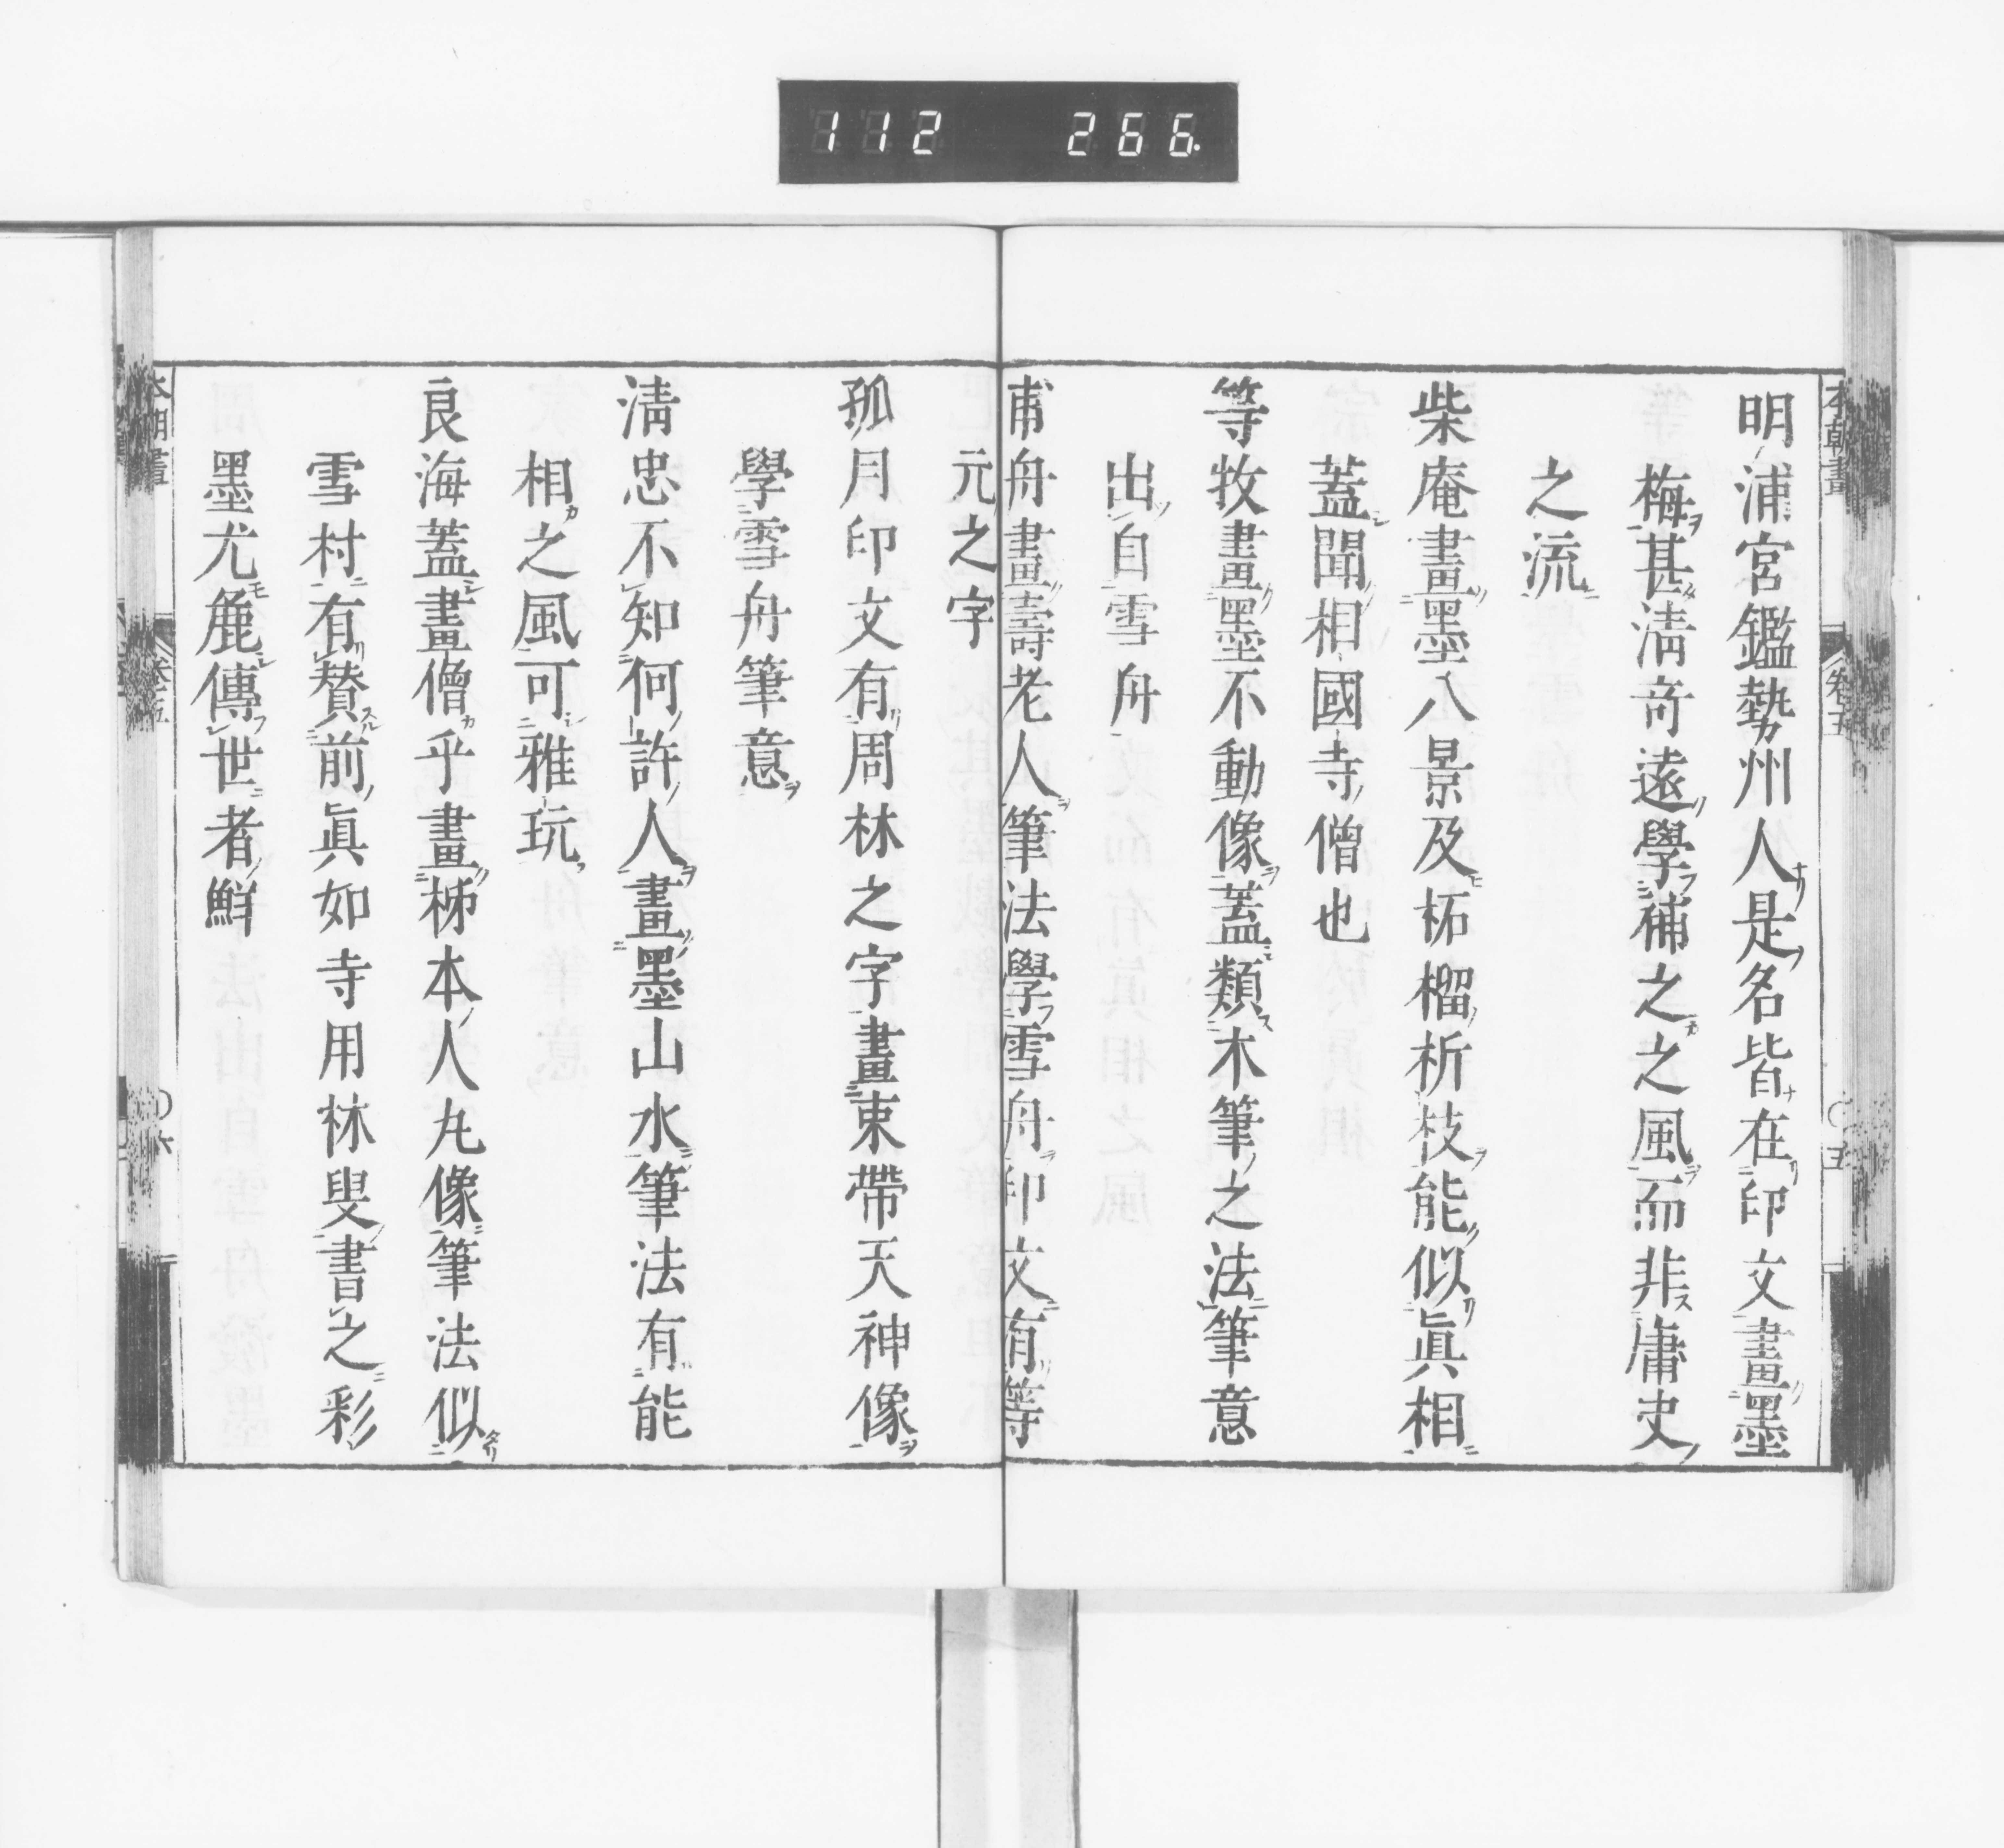 112 266.
本朝畫 卷五 〇五
明浦宮鑑勢州人是名皆在印文畫墨
梅甚淸奇遠學補之之風而非庸史
之流
柴庵畫墨八景及柘榴折枝能似眞相
蓋聞相國寺僧也
等牧畫墨不動像蓋類木筆之法筆意
出自雪舟
甫舟畫壽老人筆法學雪舟印文有等
元之字
孤月印文有周林之字畫束帶天神像
學雪舟筆意
淸忠不知何許人畫墨山水筆法有能
相之風可雅玩
良海蓋畫僧乎畫柹本人丸像筆法似
雪村有賛前眞如寺用林叟書之彩
墨尤麁傳世者鮮
本朝畫 卷五 〇六